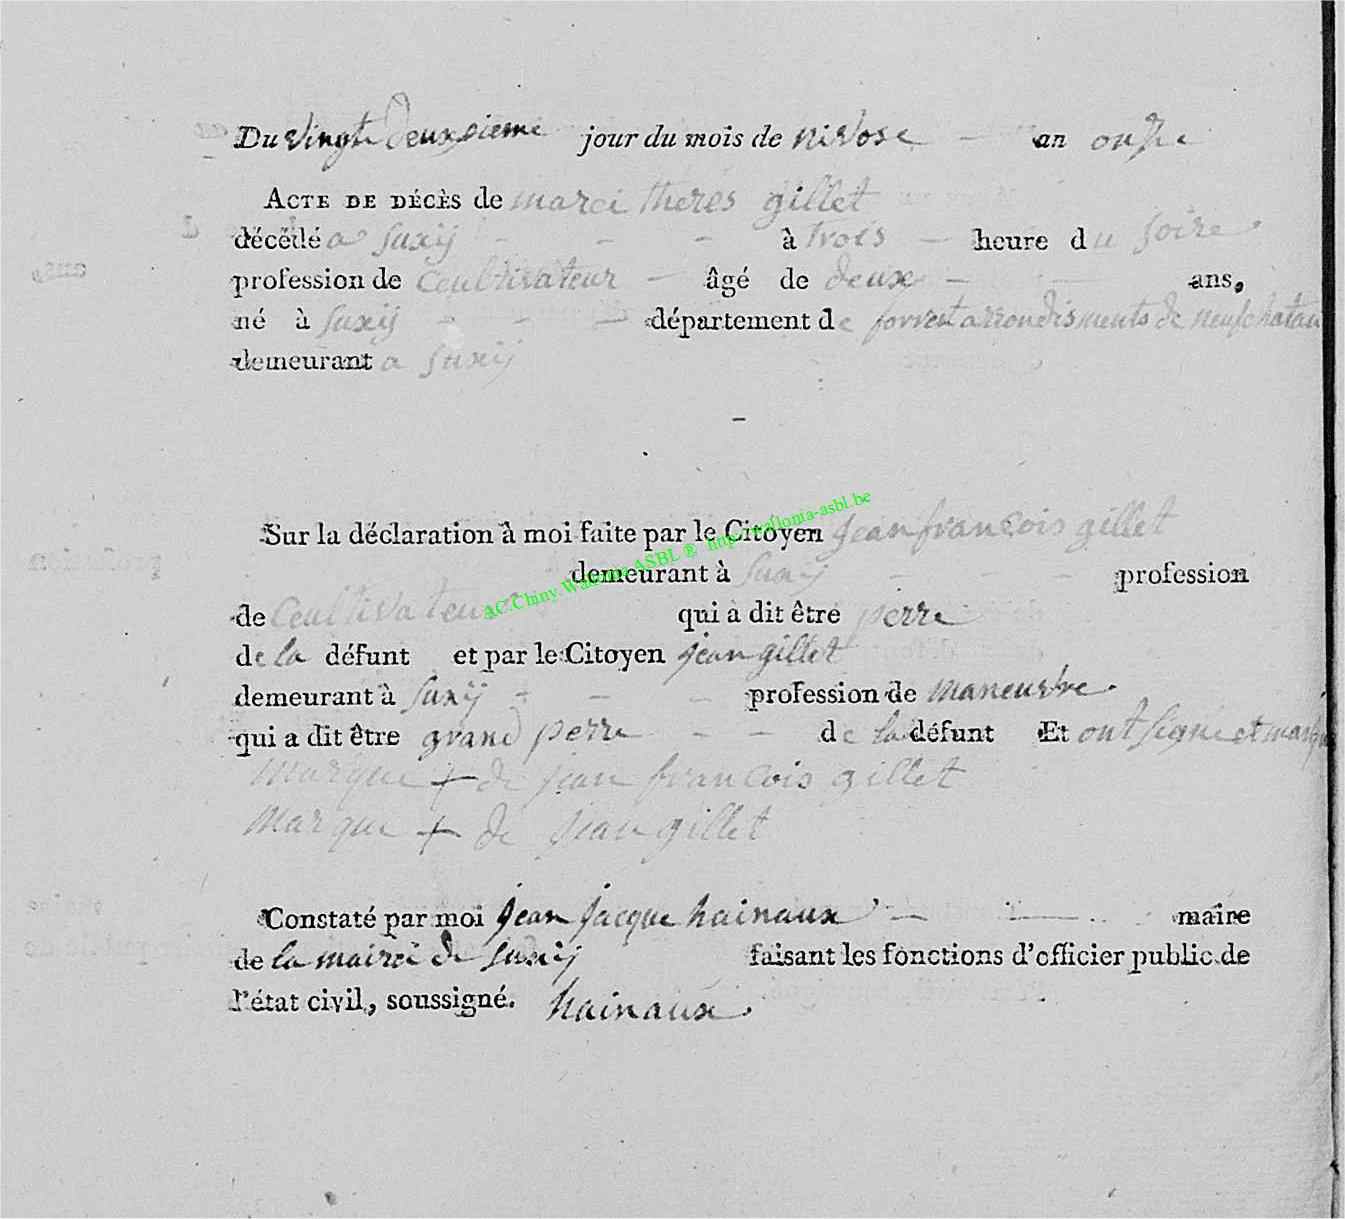 Du vingte deuxsieme jour du mois de nivose - an onze
ACTE DE DÉCÈS de marei theres gillet
décédé a suxÿ - - - à trois - heure du soire
profession de Ceultivateur - âgé de deux - ans,
né à suxÿ - - - département de forrest arrondisments de neufchatau
demeurant a suxÿ
Sur la déclaration à moi faite par le Citoyen jean francois gillet
demeurant à suxÿ - - - profession
de Ceultivateur qui a dit être perre
de la défunt et par le Citoyen jean gillet
demeurant à suxÿ - - - profession de maneuvre
qui a dit être grand perre - - de la défunt Et ont signé et marqu
marque + de jean francois gillet
marque + de jean gillet
Constaté par moi jean jacque hainaux - maire
de la mairei de suxÿ faisant les fonctions d'officier public de
l'état civil, soussigné. hainaux.
AC.Chiny.Wallonia ASBL ® http:wallonia-asbl.be